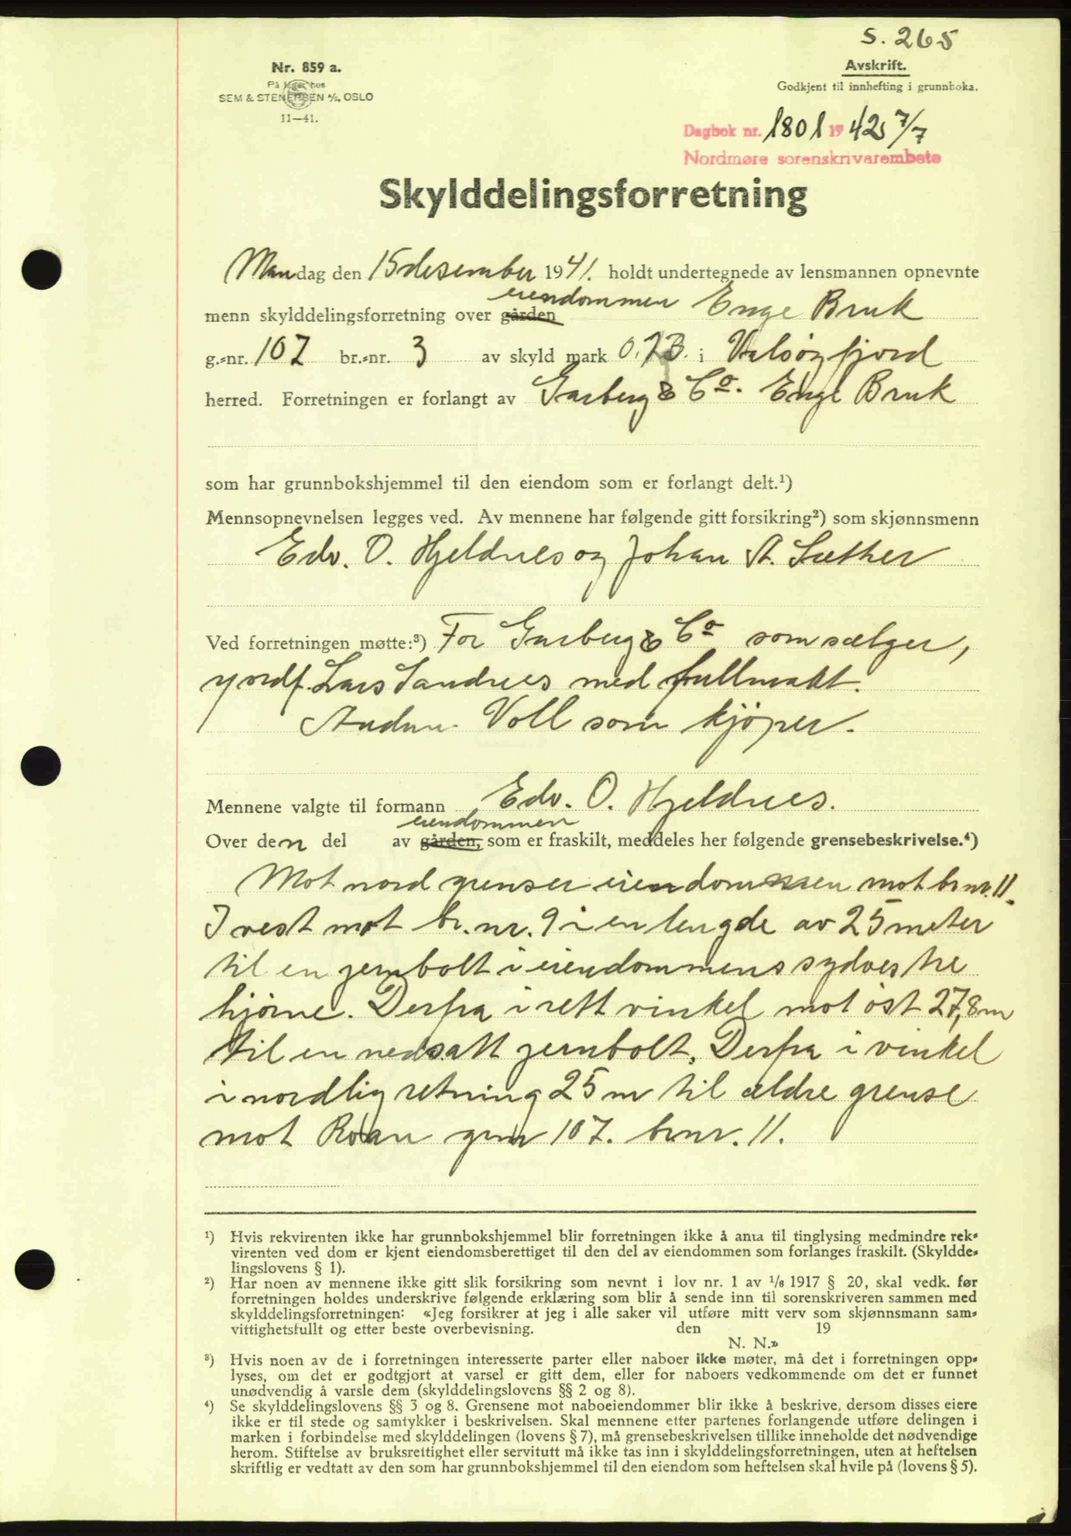 S. 265
Nr. 859 a.
På lager hos
SEM & STENERSEN A/S, OSLO
11—41.
Avskrift.
Godkjent til innhefting i grunnboka.
Dagbok nr. 1801 1942, 7/7
Nordmøre sorenskrivarembete
Skylddelingsforretning
Mandag den 15 desember 1941. holdt undertegnede av lensmannen opnevnte
eiendommen
menn skylddelingsforretning over gården Enge Bruk
g.-nr. 107 br.-nr. 3 av skyld mark 0.73. i Valsøyfjord
herred. Forretningen er forlangt av Garberg & Co. Enge Bruk
som har grunnbokshjemmel til den eiendom som er forlangt delt.¹)
Mennsopnevnelsen legges ved. Av mennene har følgende gitt forsikring²) som skjønnsmenn
Edv. O. Hjeldnes og Johan A. Sæther
Ved forretningen møtte:³) For Garberg & Co som sælger,
Lars Sandnes med fullmakt.
Voll som kjöper.
Mennene valgte til formann Edv. O. Hjeldnes.
eiendommen
Over den del av gården, som er fraskilt, meddeles her følgende grensebeskrivelse.⁴)
Mot nord grenser eiendommen mot br.nr. 11.
I vest mot br.nr. 9 i en lengde av 25 meter
til en jernbolt i eiendommens sydvestre
hjörne. Derfra i rett vinkel mot öst 27,8 m
til en nedsatt jernbolt, Derfra i vinkel
i nordlig retning 25 m til ældre grense
mot Roan gnr 107. brnr. 11.
¹) Hvis rekvirenten ikke har grunnbokshjemmel blir forretningen ikke å anta til tinglysing medmindre rek-
virenten ved dom er kjent eiendomsberettiget til den del av eiendommen som forlanges fraskilt. (Skyldde-
lingslovens § 1).
²) Har noen av mennene ikke gitt slik forsikring som nevnt i lov nr. 1 av 1/6 1917 § 20, skal vedk. før
forretningen holdes underskrive følgende erklæring som blir å sende inn til sorenskriveren sammen med
skylddelingsforretningen: «Jeg forsikrer at jeg i alle saker vil utføre mitt verv som skjønnsmann sam-
vittighetsfullt og etter beste overbevisning. den 19
N. N.»
³) Hvis noen av de i forretningen interesserte parter eller naboer ikke møter, må det i forretningen opp-
lyses, om det er godtgjort at varsel er gitt dem, eller for naboers vedkommende om det er funnet
unødvendig å varsle dem (skylddelingslovens §§ 2 og 8).
⁴) Se skylddelingslovens §§ 3 og 8. Grensene mot naboeiendommer blir ikke å beskrive, dersom disses eiere
ikke er til stede og samtykker i beskrivelsen. Skal mennene etter partenes forlangende utføre delingen i
marken i forbindelse med skylddelingen (lovens § 7), må grensebeskrivelsen tillike inneholde det nødvendige
herom. Stiftelse av bruksrettighet eller servitutt må ikke tas inn i skylddelingsforretningen, uten at heftelsen
skriftlig er vedtatt av den som har grunnbokshjemmel til den eiendom som heftelsen skal hvile på (lovens § 5).